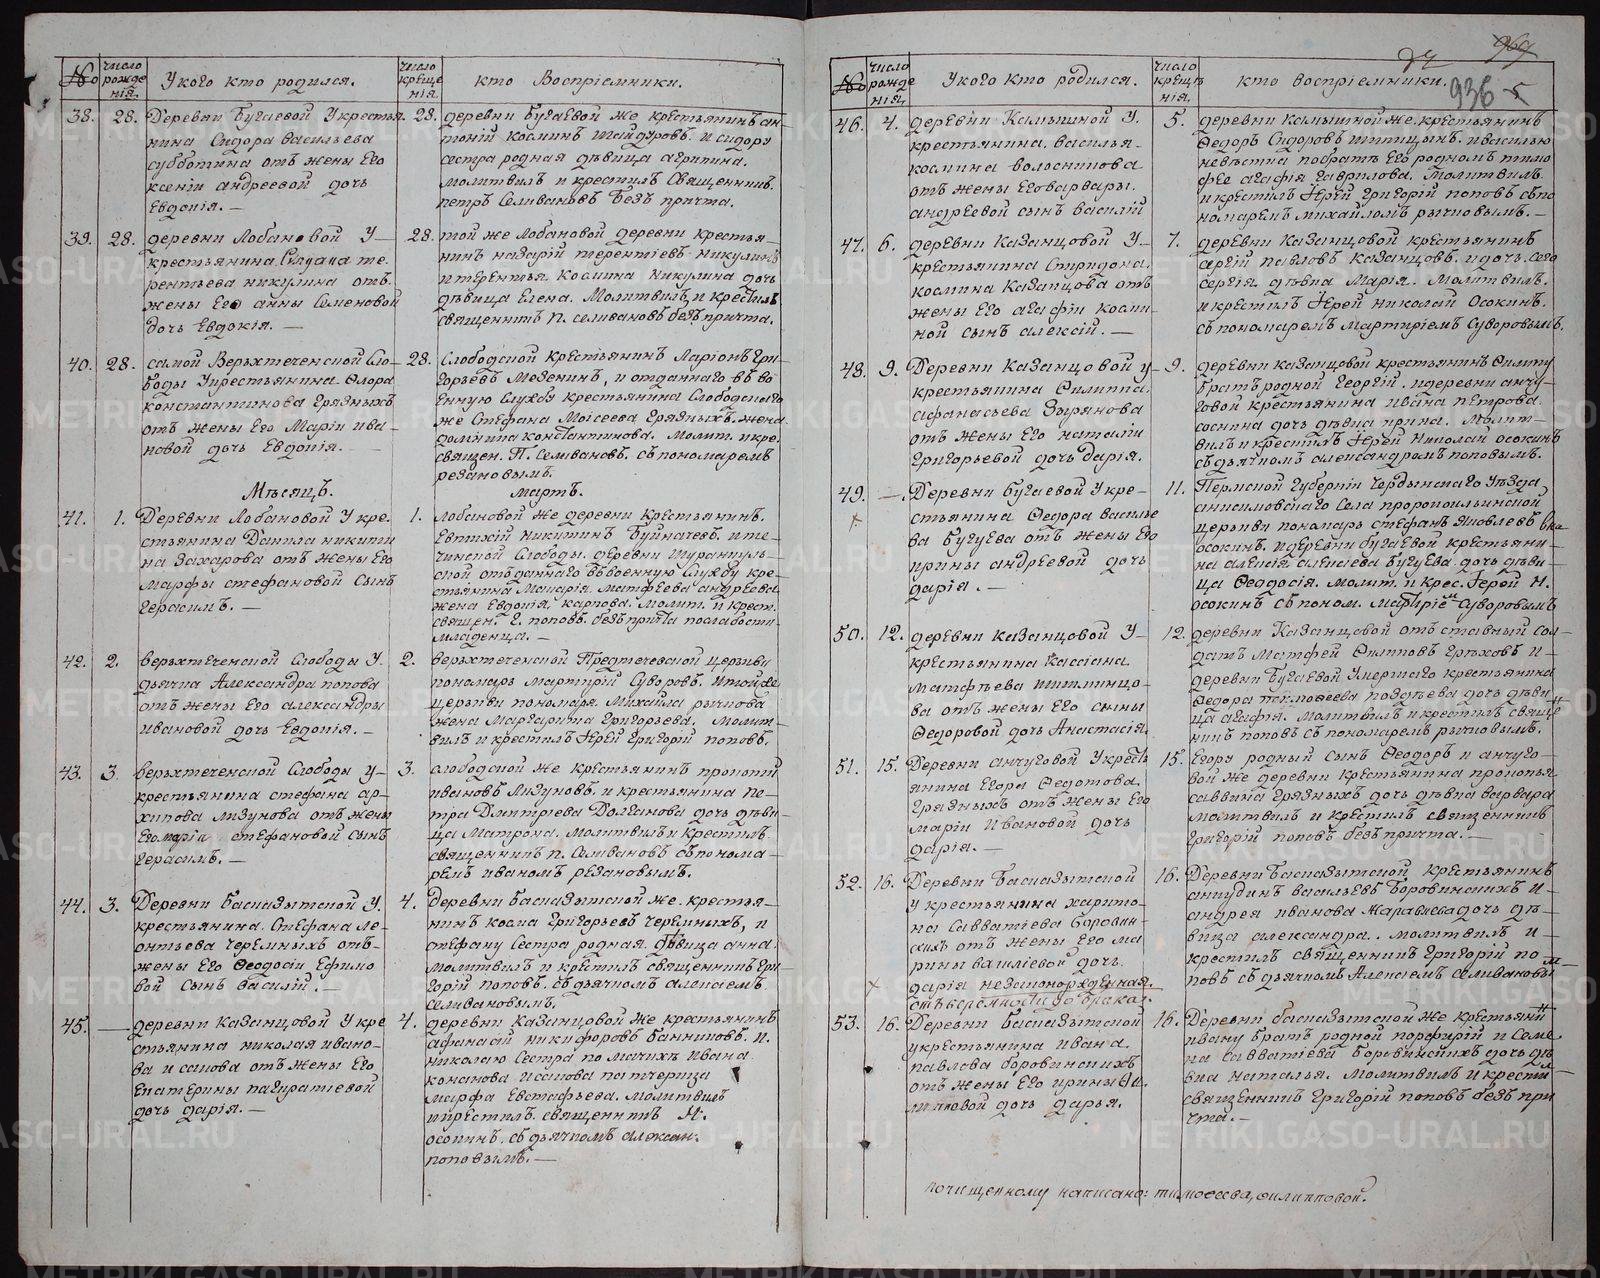 №
число рождения.
У кого кто родился.
число крещения.
кто Восприемники.
38. 28.
Деревни Бугаевой У крестья-
нина Сидора васильева
субботина отъ жены Его
ксении андреевой дочь
Евдокiя. —
28.
деревни бугаевой же крестьянинъ ан-
тонiй косминъ и сидору
сестра родная дѣвица агрипина.
молитвилъ и крестилъ Священникъ
петръ Селивановъ Безъ причта.
39. 28.
деревни Лобановой У
крестьянина те-
рентьева никулина отъ
жены Его анны Семеновой
дочь Евдокiя. —
28.
той же Лобановой деревни крестья-
нинъ назарiй терентiевъ никулинъ
и терентья космина никулина дочь
дѣвица Елена. Молитвилъ и крестилъ
священникъ п. селивановъ безъ причта.
40. 28.
самой Верхтеченской Сло-
боды У крестьянина Флора
константинова грязныхъ
отъ жены Его Марiи ива-
новой дочь Евдокiя.
28.
Слободской крестьянинъ Ларiонъ гри-
горьевъ Мезенинъ, и отданнаго въ во-
енную службу крестьянина Слободскаго
же Стефана Моисеева грязныхъ жена
домника константинова. молит. и кре.
священ. П. Селивановъ. съ пономаремъ
резановымъ.
Мѣсяцъ. Мартъ.
41. 1.
Деревни Лобановой У кре-
стьянина Данила никити-
на Захарова отъ жены Его
марфы стефановой Сынъ
герасимъ. —
1.
лобановой же деревни крестьянинъ
Евтихiй никитинъ Буйначевъ. и те-
чинской Слободы. деревни
отъ даннаго въ военную Службу кре-
стьянина Макарiя. матфеева андреева
жена Евдокiя карпова. молит. и крест.
священ. г. поповъ. безъ причта по слабости
младенца. —
42. 2.
верхтеченской Слободы У
дьячка Александра попова
отъ жены Его александры
ивановой дочь Евдокiя. —
2.
верхтеченской Предтечевской церкви
пономарь мартирiй Суворовъ. и той же
церкви пономаря. Михайла рычкова
жена маргарита григорьева. молит-
вилъ и крестилъ Iерей григорiй поповъ.
43. 3
верхтеченской Слободы у
крестьянина стефана ар-
хипова лизунова отъ жены
Его марiи стефановой Сынъ
герасимъ. —
3.
слободской же крестьянинъ прокопiй
ивановъ лизуновъ. и крестьянина пе-
тра Дмитрiева Долганова дочь дѣви-
ца матрона. молитвилъ и крестилъ
священникъ п. Селивановъ съ понома-
ремъ иваномъ резановымъ.
44. 3.
Деревни басказыкской У
крестьянина. Стефана ле-
онтьева черемныхъ отъ
жены Его Феодосiи Ефимо-
вой Сынъ василiй. —
4.
деревни басказыкской же. крестья-
нинъ косма григорьевъ черемныхъ, и
стефану Сестра родная. дѣвица анна.
молитвилъ и крестилъ священникъ гри-
горiй поповъ. съ дьячкомъ алексiемъ
селивановымъ.
45. —
деревни казанцовой У кре-
стьянина николая ивано-
ва исакова отъ жены Его
Екатерины панкратьевой
дочь дарiя. —
4.
деревни казанцовой же крестьянинъ
афанасiй никифоровъ банниковъ. и
николаю Сестра по мачихѣ ивана
кононова исакова падчерица
марфа Евстафьева. молитвилъ
и крестилъ священникъ Н.
осокинъ. съ дьячкомъ алексан:
поповымъ. —
969
936
№
число рождения.
У кого кто родился.
число крещенiя.
кто восприемники.
46. 4.
деревни Камышной У
крестьянина. василья
космина волосникова
отъ жены Его варвары.
андреевой сынъ василiй
5.
деревни камышной же. крестьянинъ
Федоръ Сидоровъ птицынъ. и василью
невѣстка по братѣ Его родномъ тимо-
фее агафiя гаврилова. молитвилъ
и крестилъ Iерей григорiй поповъ съ по-
номаремъ михайломъ рычковымъ. —
47. 6.
деревни казанцовой У
крестьянина Спиридона
космина казанцова отъ
жены Его агафiи косми-
ной сынъ алексiй. —
7.
деревни казанцовой крестьянинъ
сергiй павловъ казанцовъ. и дочь сего
сергiя. дѣвка марiя. молитвилъ.
и крестилъ Iерей николай осокинъ.
съ пономаремъ мартирiемъ Суворовымъ.
48. 9.
Деревни казанцовой у
крестьянина Филиппа
афанасьева Зырянова
отъ жены Его наталiи
григорьевой дочь дарiя.
9.
деревни казанцовой крестьянинъ Филипу
братъ родной георгiй. и деревни анчу-
говой крестьянина ивана петрова
соснина дочь дѣвка ирина. молит-
вилъ и крестилъ Iерей николай осокинъ
съ дьячкомъ александромъ поповымъ.
49. —
Деревни бугаевой У кре-
стьянина Федора василье-
ва бугуева отъ жены Его
ирины андреевой дочь
дарiя. —
11.
Пермской губернiи Чердынскаго Уѣзда
анисимовскаго Села прокопьинской
церкви пономарь стефанъ Яковлевъ
осокинъ. и деревни бугаевой крестьяни-
на алексiя алексiева бугуева дочь дѣви-
ца Феодосiя. молит. и крес. Iерей Н.
осокинъ съ поном. мартирiемъ Суворовымъ
50. 12.
деревни казанцовой У
крестьянина кассiана
матфѣева
отъ жены Его
Федоровой дочь Анастасiя.
12.
деревни казанцовой отъ ставный сол-
датъ матфей Филиповъ грѣховъ и
деревни бугаевой Умершаго крестьянина
Федора поздѣева дочь дѣви-
ца агафiя. молитвилъ и крестилъ священ-
никъ поповъ съ пономаремъ рычковымъ.
51. 15.
Деревни анчуговой У кресть-
янина Егора Федотова
грязныхъ отъ жены Его
марiи Ивановой дочь
дарiя. —
15.
Егору родный сынъ Феодоръ и анчуго-
вой же деревни крестьянина прокопья
саввина грязныхъ дочь дѣвка варвара
молитвилъ и крестилъ священникъ
григорiй поповъ безъ причта. —
52. 16.
Деревни басказыкской
у крестьянина харито-
на Савватiева боровин-
скихъ отъ жены Его ма-
рины васильевой дочь
дарiя незаконорожденная.
16.
Деревни басказыкской крестьянинъ
анкудинъ васильевъ боровинскихъ и
андрея иванова дочь дѣ-
вка александра. молитвилъ и
крестилъ священникъ григорiй по-
повъ съ дьячкомъ Алексiемъ селивановымъ
53. 16.
Деревни басказыкской
у крестьянина ивана
павлова боровинскихъ
отъ жены Его ирины Фи-
липповой дочь дарья.
16.
Деревни басказыкской же крестьянинъ
ивану братъ родной порфирiй и Семе-
на савватiева боровинскихъ дочь дѣ-
вка наталья. молитвилъ и крестилъ
священникъ григорiй поповъ безъ при-
чта. —
почищенному написано: тимофеева, филипповой.
METRIKI.GASO-URAL.RU